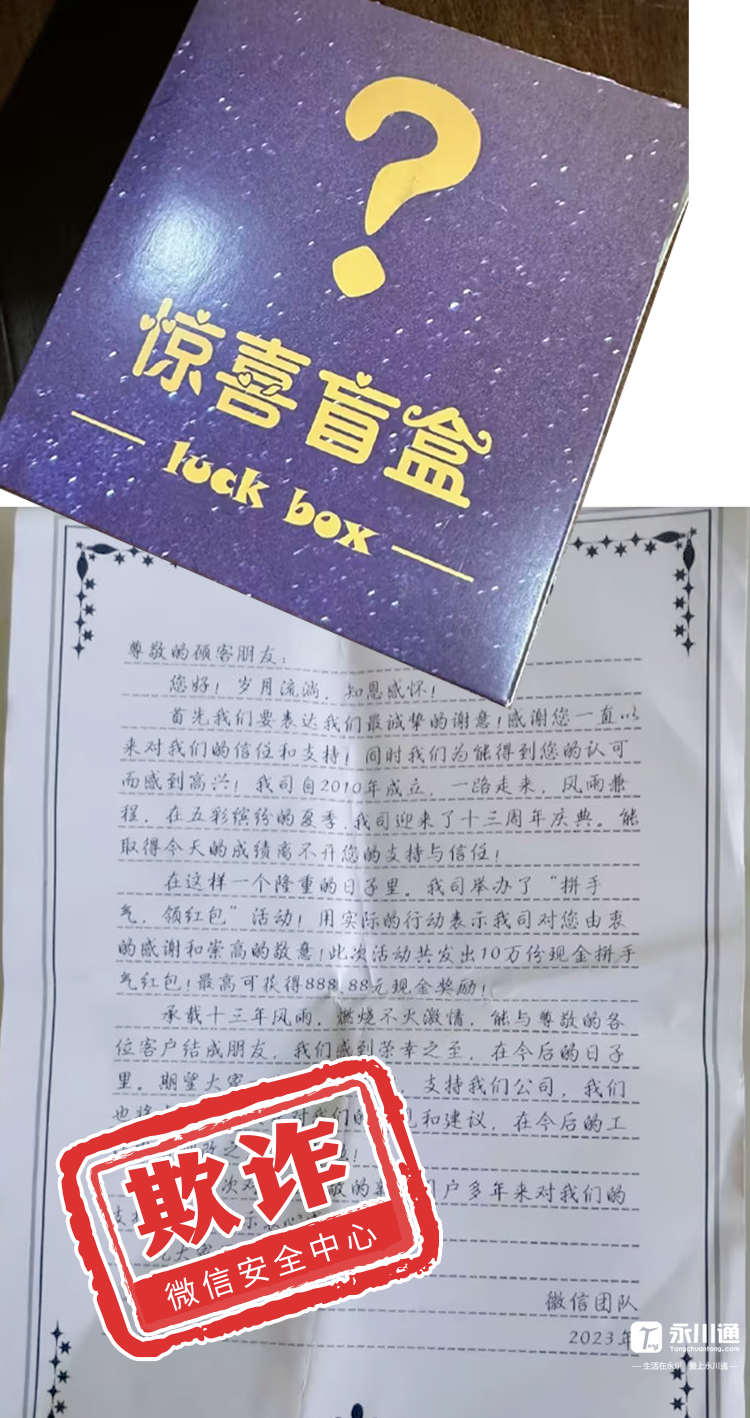 ?
惊喜盲盒
luck box
尊敬的顾客朋友：
您好！岁月流淌，知恩感怀！
首先我们要表达我们最诚挚的谢意！感谢您一直以
来对我们的信任和支持！同时我们为能得到您的认可
而感到高兴！我司自2010年成立，一路走来，风雨兼
程，在五彩缤纷的夏季，我司迎来了十三周年庆典。能
取得今天的成绩离不开您的支持与信任！
在这样一个隆重的日子里。我司举办了“拼手
气，领红包”活动！用实际的行动表示我司对您由衷
的感谢和崇高的敬意！此次活动共发出10万份现金拼手
气红包！最高可获得888.88元现金奖励！
承载十三年风雨，燃烧不火激情，能与尊敬的各
位客户结成朋友，我们感到荣幸之至，在今后的日子
里。期望大家 支持我们公司，我们
也将 对我们的 见和建议，在今后的工
改之
次对 敬的新 用户多年来对我们的
支持 示衷心
微信团队
2023年
欺诈
微信安全中心
永川通
Yongchuantong.com
生活在永川 爱上永川通